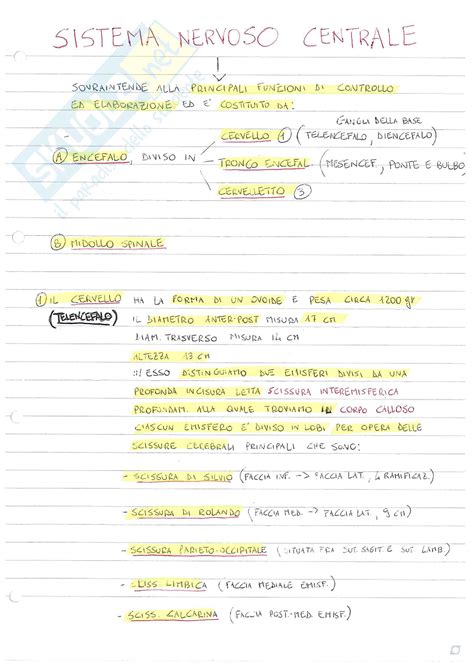 SISTEMA NERVOSO CENTRALE
SOVRAINTENDE ALLA PRINCIPALI FUNZIONI DI CONTROLLO
ED ELABORAZIONE ED E' COSTITUITO DA:
GANGLI DELLA BASE
CERVELLO 1 (TELENCEFALO, DIENCEFALO)
A ENCEFALO, DIVISO IN
TRONCO ENCEFAL. (MESENCEF., PONTE E BULBO)
CERVELLETTO 3
B MIDOLLO SPINALE
1 IL CERVELLO HA LA FORMA DI UN OVOIDE E PESA CIRCA 1200 gr
(TELENCEFALO) IL DIAMETRO ANTER-POST MISURA 17 CM
DIAM. TRASVERSO MISURA 14 CM
ALTEZZA 13 CM
ESSO DISTINGUIAMO DUE EMISFERI DIVISI DA UNA
PROFONDA INCISURA LETTA SCISSURA INTEREMISFERICA
PROFONDAM. ALLA QUALE TROVIAMO IL CORPO CALLOSO
CIASCUN EMISFERO E' DIVISO IN LOBI PER OPERA DELLE
SCISSURE CEREBRALI PRINCIPALI CHE SONO:
- SCISSURA DI SILVIO (FACCIA INF. -> FACCIA LAT., 4 RAMIFICAZ.)
- SCISSURA DI ROLANDO (FACCIA MED. -> FACCIA LAT., 9 CM)
- SCISSURA PARIETO-OCCIPITALE (SITUATA FRA SUT. SAGIT. E SUT. LAMB.)
- SCISS LIMBICA (FACCIA MEDIALE EMISF.)
- SCISS. CALCARINA (FACCIA POST.-MED. EMISF.)